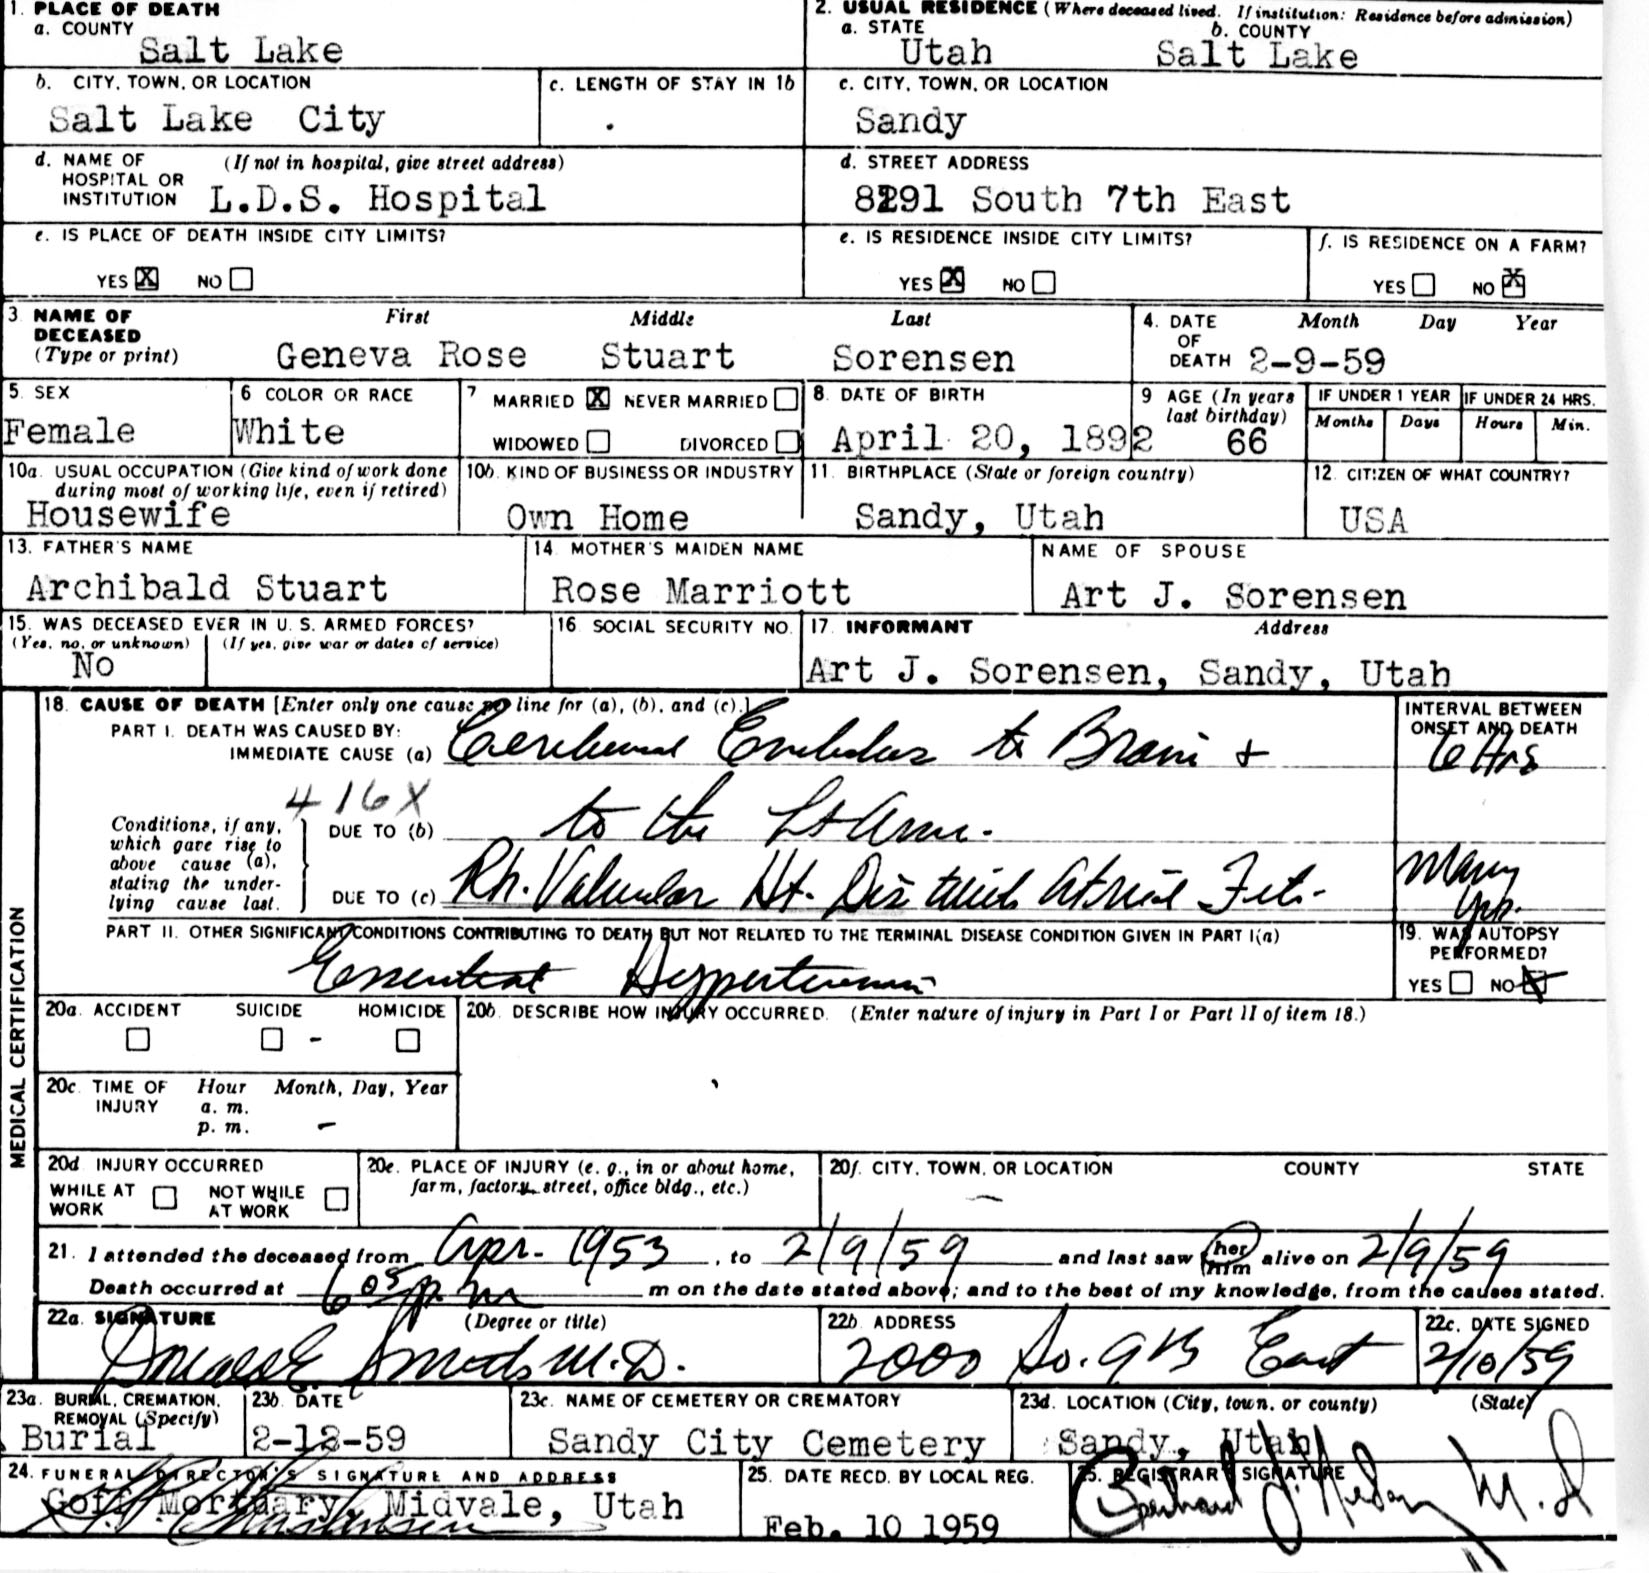 1. PLACE OF DEATH
a. COUNTY
Salt Lake
2. USUAL RESIDENCE (Where deceased lived. If institution: Residence before admission)
a. STATE b. COUNTY
Utah Salt Lake
b. CITY, TOWN, OR LOCATION
Salt Lake City
c. LENGTH OF STAY IN 1b
c. CITY, TOWN, OR LOCATION
Sandy
d. NAME OF (If not in hospital, give street address)
HOSPITAL OR
INSTITUTION L.D.S. Hospital
d. STREET ADDRESS
8291 South 7th East
e. IS PLACE OF DEATH INSIDE CITY LIMITS?
YES X NO
e. IS RESIDENCE INSIDE CITY LIMITS?
YES X NO
f. IS RESIDENCE ON A FARM?
YES NO X
3. NAME OF First Middle Last
DECEASED
(Type or print) Geneva Rose Stuart Sorensen
4. DATE Month Day Year
OF
DEATH 2-9-59
5. SEX
Female
6 COLOR OR RACE
White
7 MARRIED X NEVER MARRIED
WIDOWED DIVORCED
8. DATE OF BIRTH
April 20, 1892
9 AGE (In years
last birthday)
66
IF UNDER 1 YEAR
Months Days
IF UNDER 24 HRS.
Hours Min.
10a. USUAL OCCUPATION (Give kind of work done
during most of working life, even if retired)
Housewife
10b. KIND OF BUSINESS OR INDUSTRY
Own Home
11. BIRTHPLACE (State or foreign country)
Sandy, Utah
12. CITIZEN OF WHAT COUNTRY?
USA
13. FATHER'S NAME
Archibald Stuart
14. MOTHER'S MAIDEN NAME
Rose Marriott
NAME OF SPOUSE
Art J. Sorensen
15. WAS DECEASED EVER IN U. S. ARMED FORCES?
(Yes, no, or unknown) (If yes, give war or dates of service)
No
16. SOCIAL SECURITY NO.
17. INFORMANT Address
Art J. Sorensen, Sandy, Utah
MEDICAL CERTIFICATION
18. CAUSE OF DEATH [Enter only one cause per line for (a), (b), and (c).]
PART I. DEATH WAS CAUSED BY:
IMMEDIATE CAUSE (a) Cerebral Embolus to Brain +
INTERVAL BETWEEN
ONSET AND DEATH
6 Hrs
416X
Conditions, if any,
which gave rise to
above cause (a),
stating the under-
lying cause last.
DUE TO (b) to the Lt Arm.
DUE TO (c) Rh. Valvular Ht. Dis with Atrial Fib.
Many
yrs.
PART II. OTHER SIGNIFICANT CONDITIONS CONTRIBUTING TO DEATH BUT NOT RELATED TO THE TERMINAL DISEASE CONDITION GIVEN IN PART I(a)
Essential Hypertension
19. WAS AUTOPSY
PERFORMED?
YES NO X
20a. ACCIDENT SUICIDE HOMICIDE
20b. DESCRIBE HOW INJURY OCCURRED. (Enter nature of injury in Part I or Part II of item 18.)
20c. TIME OF Hour Month, Day, Year
INJURY a. m.
p. m. –
20d INJURY OCCURRED
WHILE AT NOT WHILE
WORK AT WORK
20e. PLACE OF INJURY (e. g., in or about home,
farm, factory, street, office bldg., etc.)
20f. CITY, TOWN, OR LOCATION COUNTY STATE
21. I attended the deceased from Apr. 1953, to 2/9/59 and last saw her him alive on 2/9/59
Death occurred at 6 05 p. m m on the date stated above; and to the best of my knowledge, from the causes stated.
22a. SIGNATURE (Degree or title)
M.D.
22b. ADDRESS
2000 So. 9th East
22c. DATE SIGNED
2/10/59
23a. BURIAL, CREMATION,
REMOVAL (Specify)
Burial
23b. DATE
2-12-59
23c. NAME OF CEMETERY OR CREMATORY
Sandy City Cemetery
23d. LOCATION (City, town, or county) (State)
Sandy, Utah
24. FUNERAL DIRECTOR'S SIGNATURE AND ADDRESS
Goff Mortuary, Midvale, Utah
25. DATE RECD. BY LOCAL REG.
Feb. 10 1959
REGISTRAR SIGNATURE
M.D